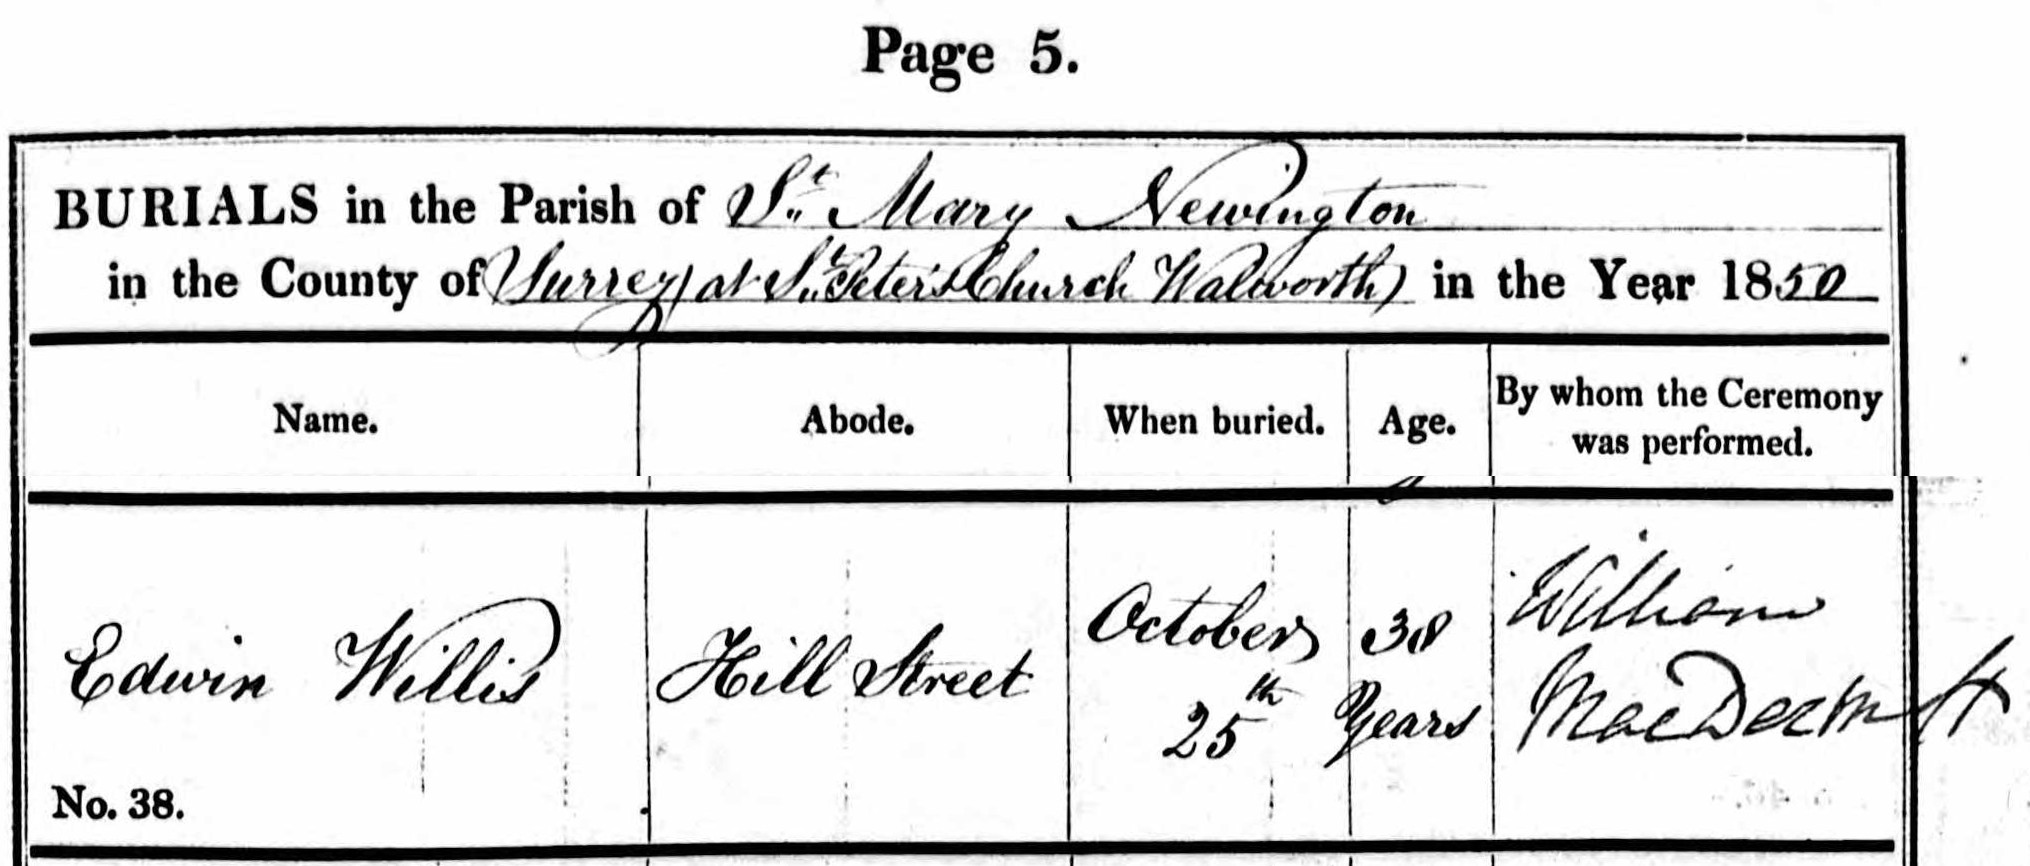 Page 5.
BURIALS in the Parish of St. Mary Newington
in the County of Surrey (at St. Peter's Church Walworth) in the Year 1850
Name.
Abode.
When buried.
Age.
By whom the Ceremony
was performed.
Edwin Willis
No. 38.
Hill Street
October
25th
38
Years
William
MacDermott